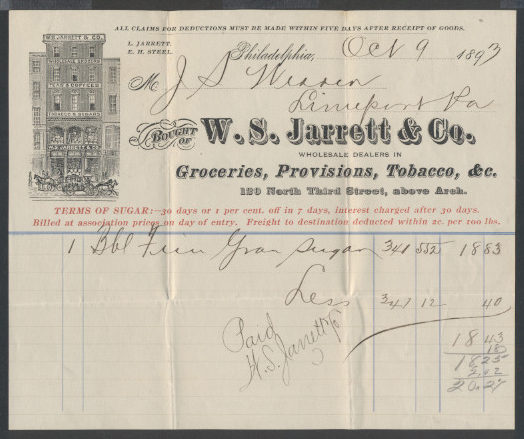 ALL CLAIMS FOR DEDUCTIONS MUST BE MADE WITHIN FIVE DAYS AFTER RECEIPT OF GOODS.
L. JARRETT.
E. H. STEEL.
Philadelphia, Oct 9 1893
M J S Weaver
Limeport Pa
BOUGHT OF W. S. Jarrett & Co.
WHOLESALE DEALERS IN
Groceries, Provisions, Tobacco, &c.
120 North Third Street, above Arch.
TERMS OF SUGAR:—30 days or 1 per cent. off in 7 days, interest charged after 30 days.
Billed at association prices on day of entry. Freight to destination deducted within 2c. per 100 lbs.
1 Bbl Gran Sugar 341 552 18 83
Less 341 12 40
18 43
18
18 25
2.02
20.27
Paid
W. S. Jarrett & Co
W. S. JARRETT & CO.
WHOLESALE GROCERS
TEAS & COFFEES
TOBACCO & SEGARS
W. S. JARRETT & CO.